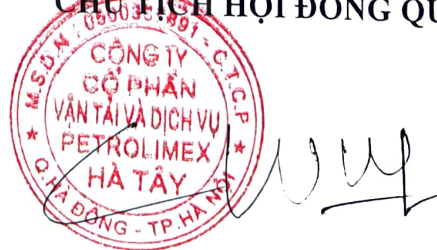 CHỦ TỊCH HỘI ĐỒNG QU
M.S.D.N: 0500387891 - C.T.C.P
CÔNG TY
CỔ PHẦN
VẬN TẢI VÀ DỊCH VỤ
PETROLIMEX
HÀ TÂY
Q.HÀ ĐÔNG - TP.HÀ NỘI